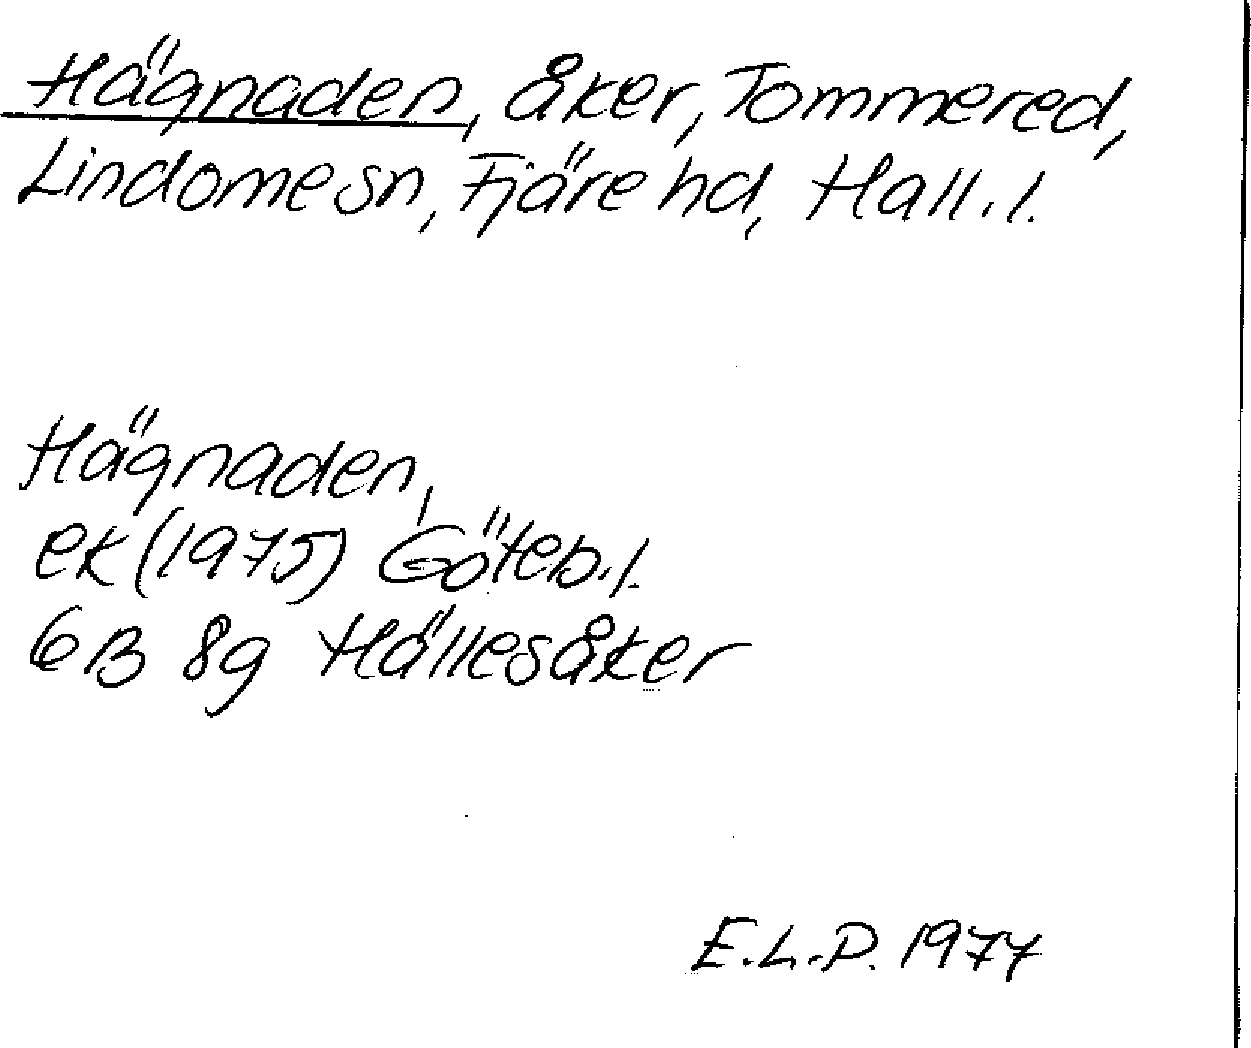 Hägnaden, åker, Tommered,
Lindome sn, Fjäre hd, Hall. l.
Hägnaden,
ek (1975) Göteb. l.
6B 8g Hällesåker
E.L.P. 1977